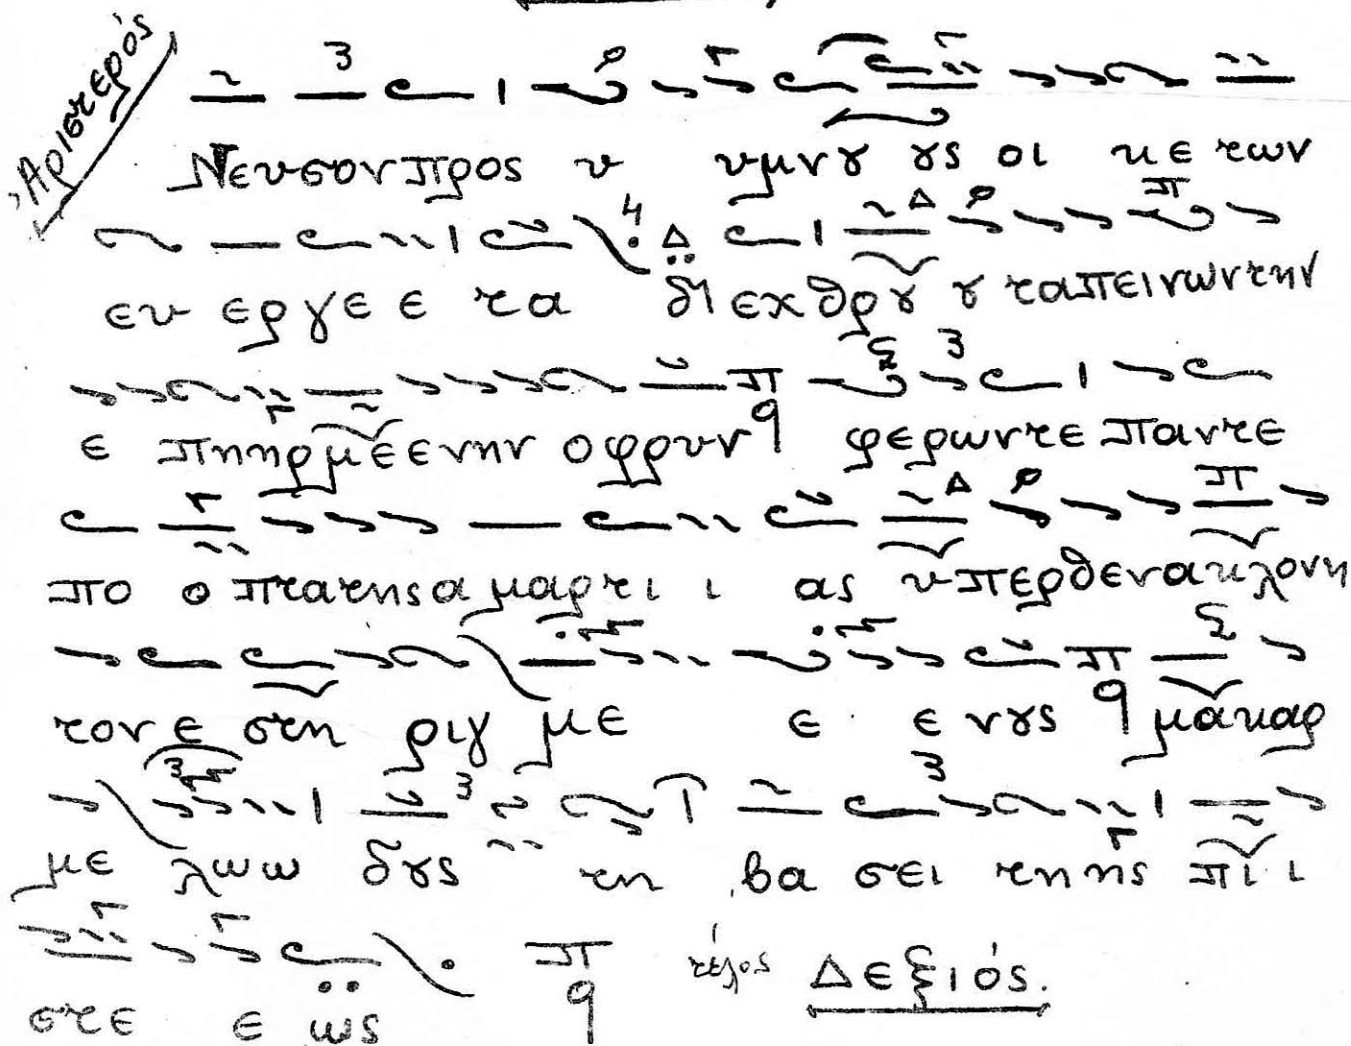 Ἀριστερός
Νευσον προς υ υμνȣ ȣς οι κε των
ευ εργε ε τα δι εχθρȣ ȣ ταπεινων την
ε πηηρμεε ενην οφρυν φερωντε παντε
πο ο πτατης αμαρτι ι ας υπερθεν ακλονη
τον ε στη ριγ με ε ε νȣς μακαρ
με λωω δȣς τη βα σει τηης πι ι
στε ε ως τέλος Δεξιός.